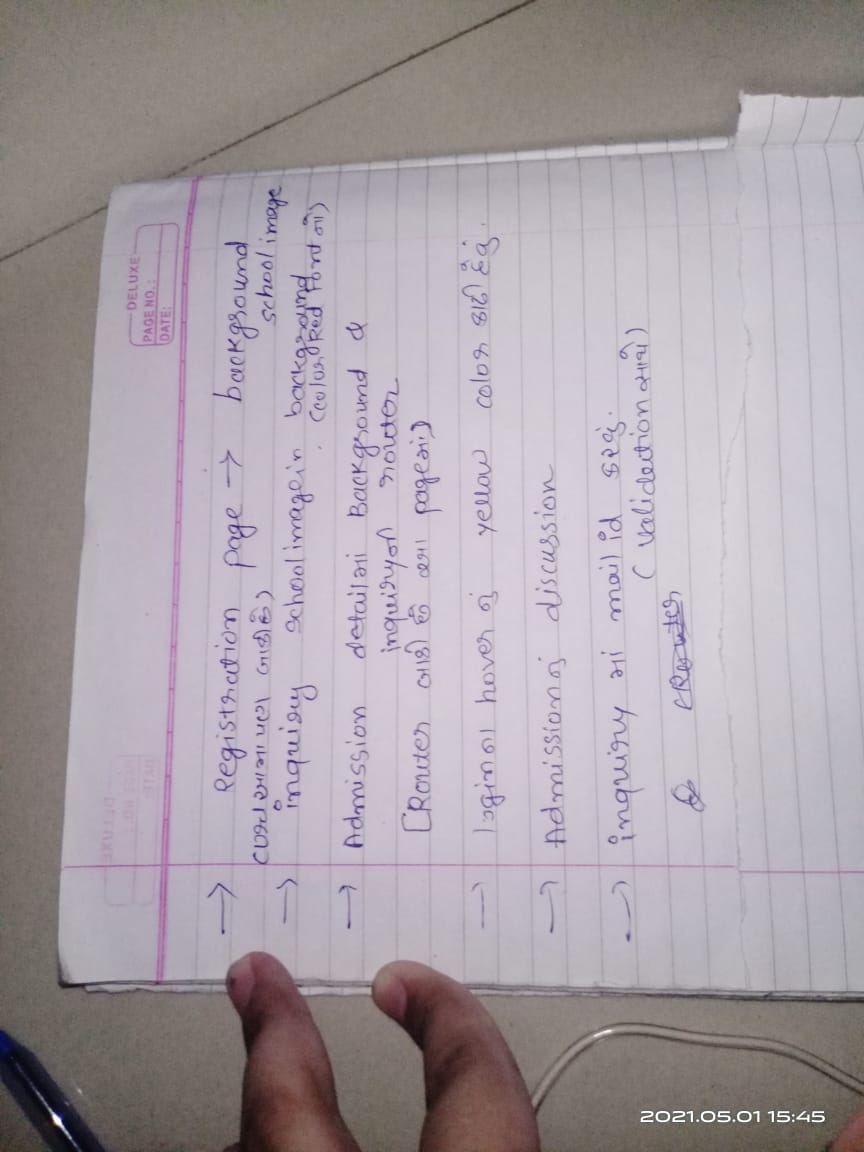 DELUXE
PAGE NO. :
DATE:
→ Registration page → background
school image
બાકી છે)
→ inquiry school image in background
(color Red Font નો)
→ Admission detail માં Background &
inquiry router
[Router બાકી છે page માં)
→ login ના hover નું yellow color
→ Admission નું discussion
→ inquiry માં mail id કરવું.
(validection સાથે)
&
2021.05.01 15:45